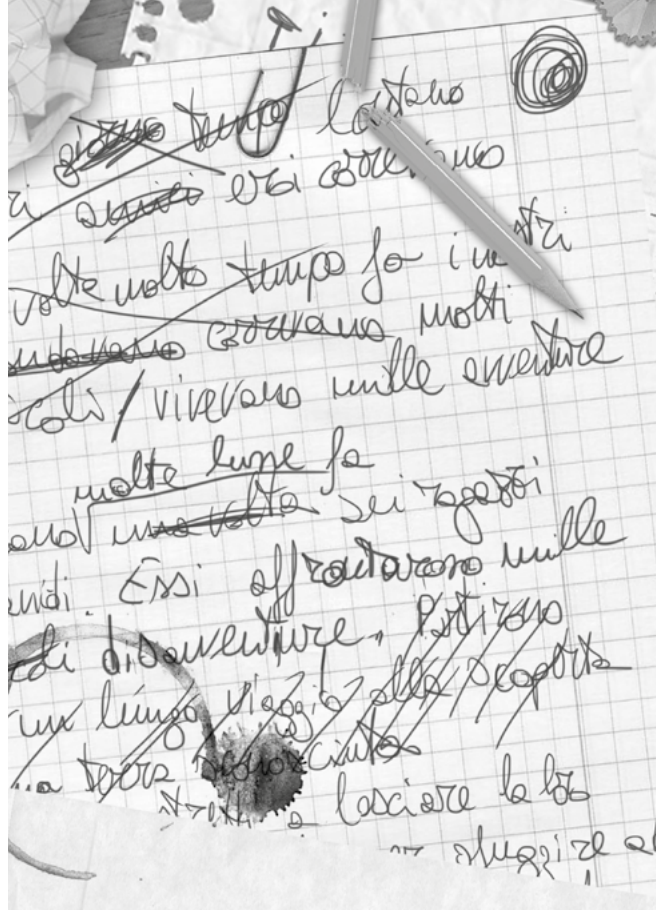 giorno tempo lontano
amici eroi correvano
volte molto tempo fa
correvano molti
vivevano mille avventure
molte lune fa
una volta sei ragazzi
Essi affrontarono mille
di disavventure. Partirono
un lungo viaggio alla scoperta
terra sconosciuta
a lasciare la loro
sfuggire a